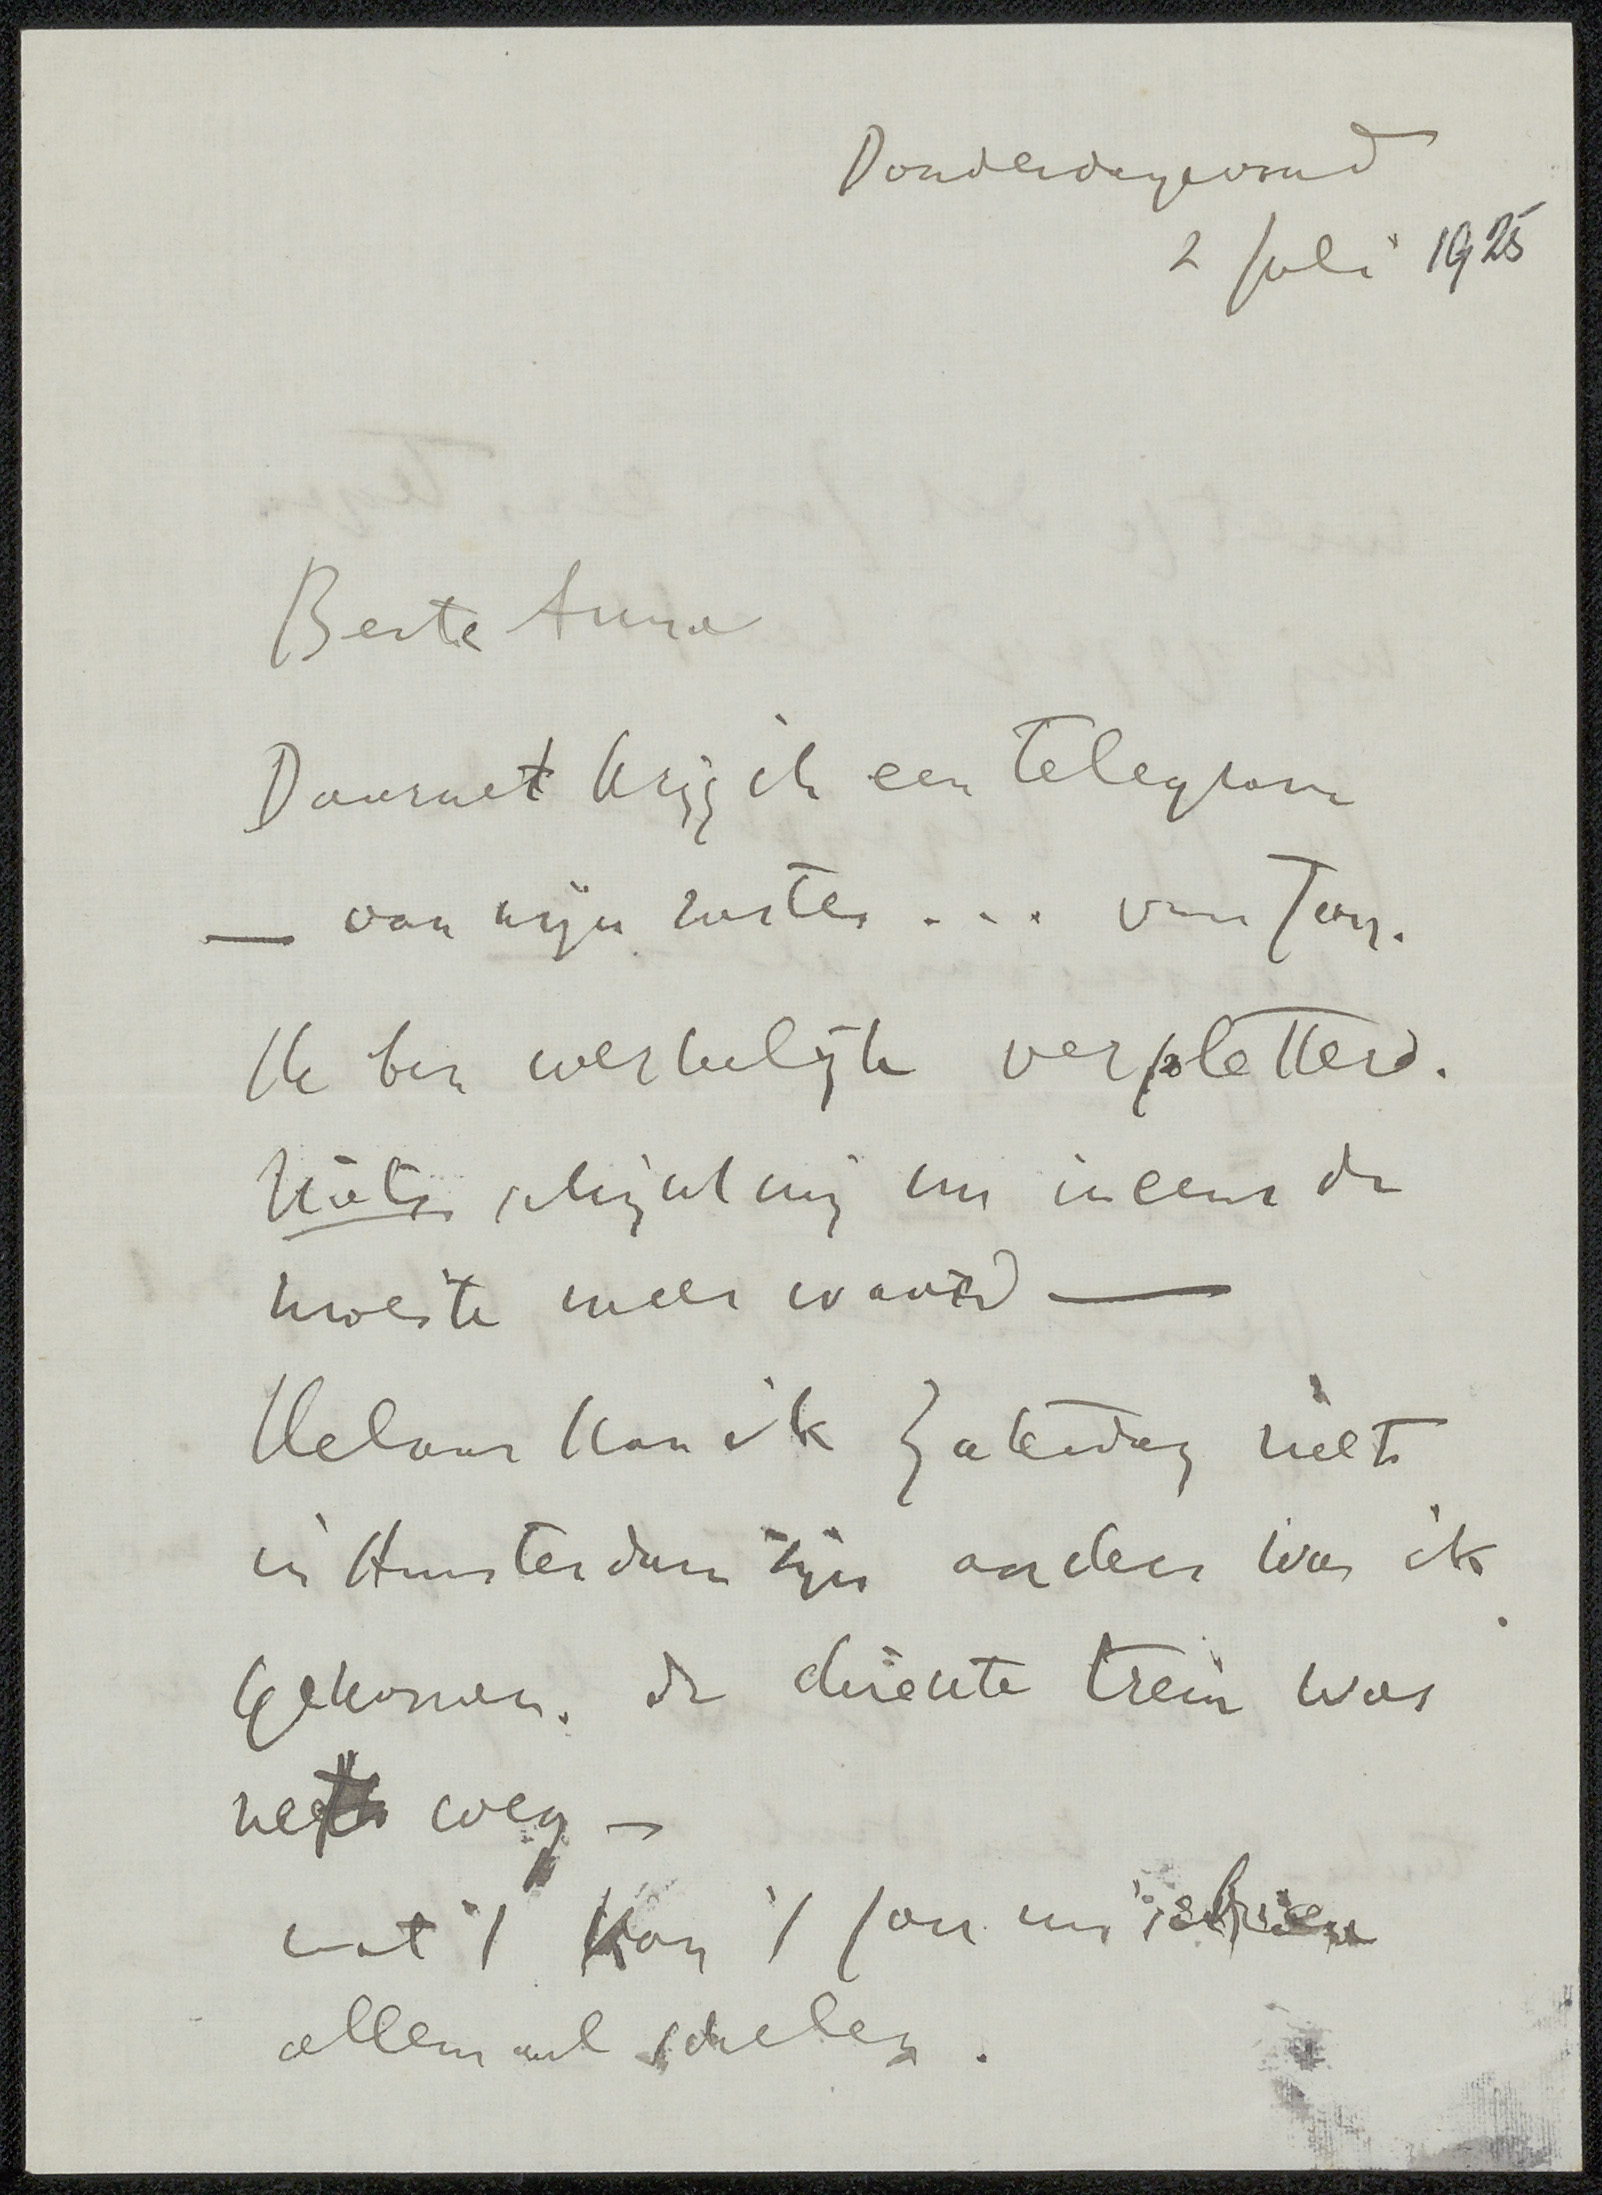 Donderdagavond
2 Juli 1925
Beste Anna
Daarnet krijg ik een telegram
— van mijn zuster ... van Jan.
Ik ben werkelijk verpletterd.
Niets schijnt mij nu ineens de
moeite meer waard —
Helaas kan ik Zaterdag niet
in Amsterdam zijn anders was ik
gekomen. de directe trein was
net weg —
wat kan Jan
allemaal schelen.